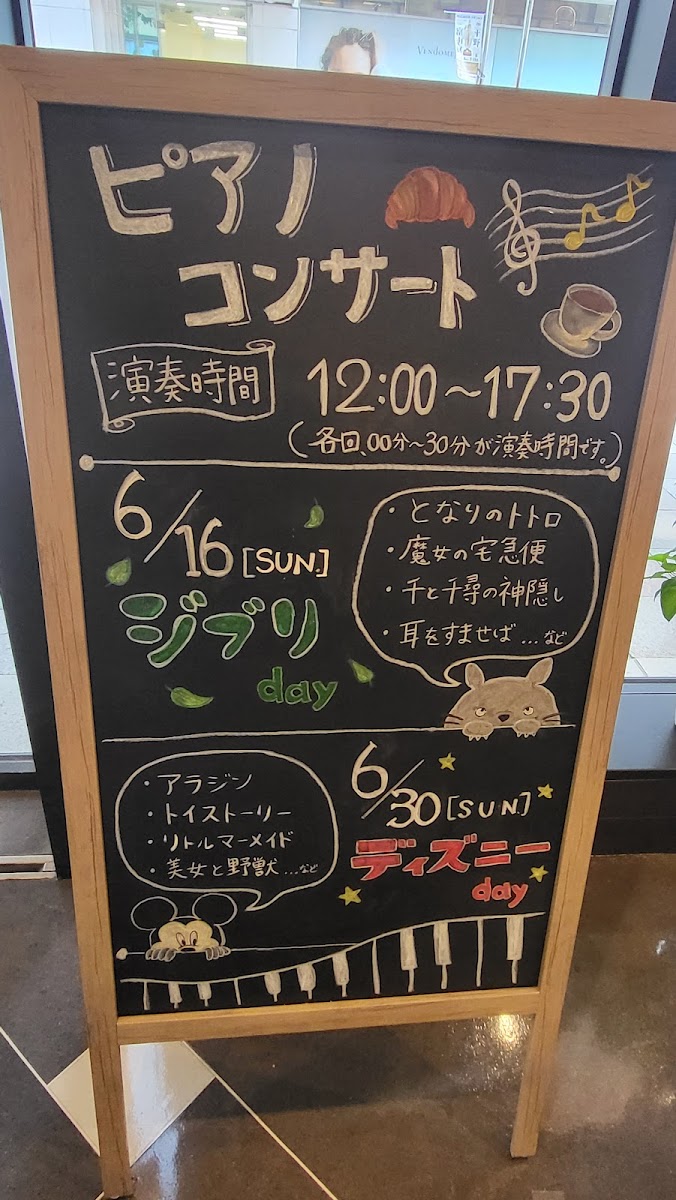 ピアノ
コンサート
演奏時間
12:00～17:30
(各回、00分～30分が演奏時間です。)
6/16[SUN.]
ジブリ
day
・となりのトトロ
・魔女の宅急便
・千と千尋の神隠し
・耳をすませば…など
6/30[SUN.]
ディズニー
day
・アラジン
・トイストーリー
・リトルマーメイド
・美女と野獣…など